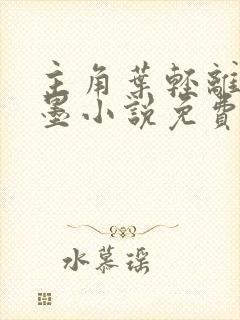 主角葉輕離
墨小說免費
水慕瑶